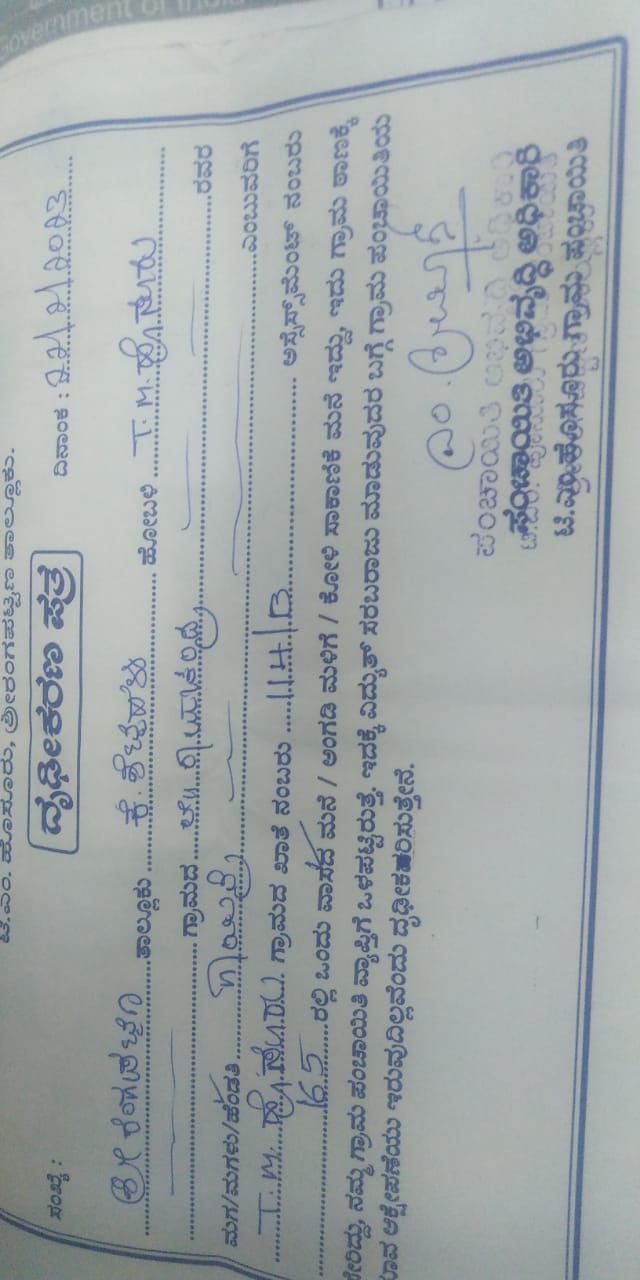 Government of India
ಟಿ.ಎಂ. ಹೊಸೂರು, ಶ್ರೀರಂಗಪಟ್ಟಣ ತಾಲ್ಲೂಕು.
ದೃಢೀಕರಣ ಪತ್ರ
ಸಂಖ್ಯೆ : ದಿನಾಂಕ :
ಶ್ರೀರಂಗಪಟ್ಟಣ ತಾಲ್ಲೂಕು ಕೆ. ಶೆಟ್ಟಹಳ್ಳಿ ಹೋಬಳಿ T. M. ಹೊಸೂರು
ಗ್ರಾಮದ ರವರ
ಮಗ/ಮಗಳು/ಹೆಂಡತಿ ಗಾಯಿತ್ರಿ ಎಂಬುವರಿಗೆ
T. M. ಹೊಸೂರು ಗ್ರಾಮದ ಖಾತೆ ನಂಬರು 114/B ಅಸ್ಸೆಸ್ಸ್‌ಮೆಂಟ್ ನಂಬರು
165 ರಲ್ಲಿ ಒಂದು ವಾಸದ ಮನೆ / ಅಂಗಡಿ ಮಳಿಗೆ / ಕೋಳಿ ಸಾಕಾಣಿಕೆ ಮನೆ ಇದ್ದು, ಇದು ಗ್ರಾಮ ಠಾಣಕ್ಕೆ
ಸೇರಿದ್ದು, ನಮ್ಮ ಗ್ರಾಮ ಪಂಚಾಯಿತಿ ವ್ಯಾಪ್ತಿಗೆ ಒಳಪಟ್ಟಿರುತ್ತೆ. ಇದಕ್ಕೆ ವಿದ್ಯುತ್ ಸರಬರಾಜು ಮಾಡುವುದರ ಬಗ್ಗೆ ಗ್ರಾಮ ಪಂಚಾಯಿತಿಯ
ಯಾವ ಆಕ್ಷೇಪಣೆಯು ಇರುವುದಿಲ್ಲವೆಂದು ದೃಢೀಕರಿಸುತ್ತೇನೆ.
ಪಂಚಾಯಿತಿ ಅಭಿವೃದ್ಧಿ ಅಧಿಕಾರಿ
ಪಂಚಾಯಿತಿ ಅಭಿವೃದ್ಧಿ ಅಧಿಕಾರಿ
ಟಿ.ಎಂ.ಹೊಸೂರು ಗ್ರಾಮ ಪಂಚಾಯಿತಿ